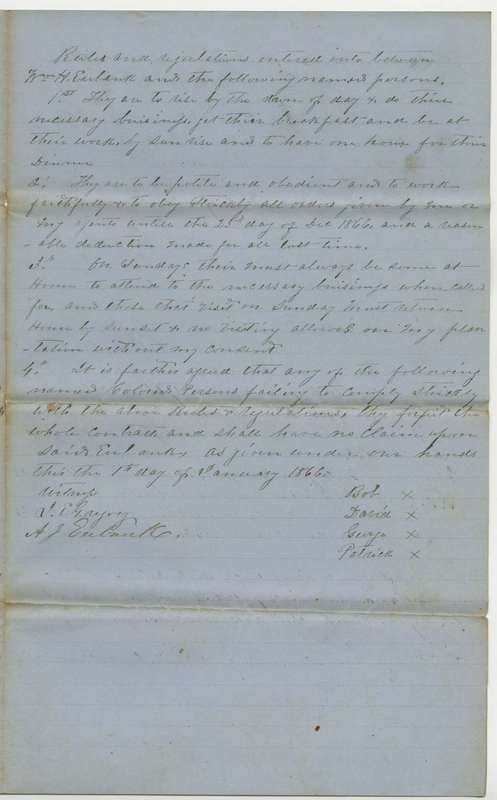 Rules and regulations entered into between
Wm H. Eubank and the following named persons.
1st They are to rise by the dawn of day & do their
necessary buisings, get their breakfast and be at
their work by sun rise and to have one hour for their
Dinner
2d They are to be polite and obedient and to work
faithfully & to obey Strictly all orders given by me or
my agents untill the 25th day of Dec 1866, and a reason
-able deduction made for all lost time.
3d On Sundays their must always be some at
Home to attend to the necessary buisings when called
for, and those that visit on Sunday must return
Home by sunset & no visiting allowed on my plan
-tation without my consent
4th It is farther agreed that any of the following
named Colored Persons failing to comply Strictly
with the above Rules & regulations, they forfeit the
whole Contract and shall have no Claim upon
Said Eubank, As given under our hands
this the 1st day of January 1866.
Witness Bob x
David x
A J Eubank. George x
Patrick x